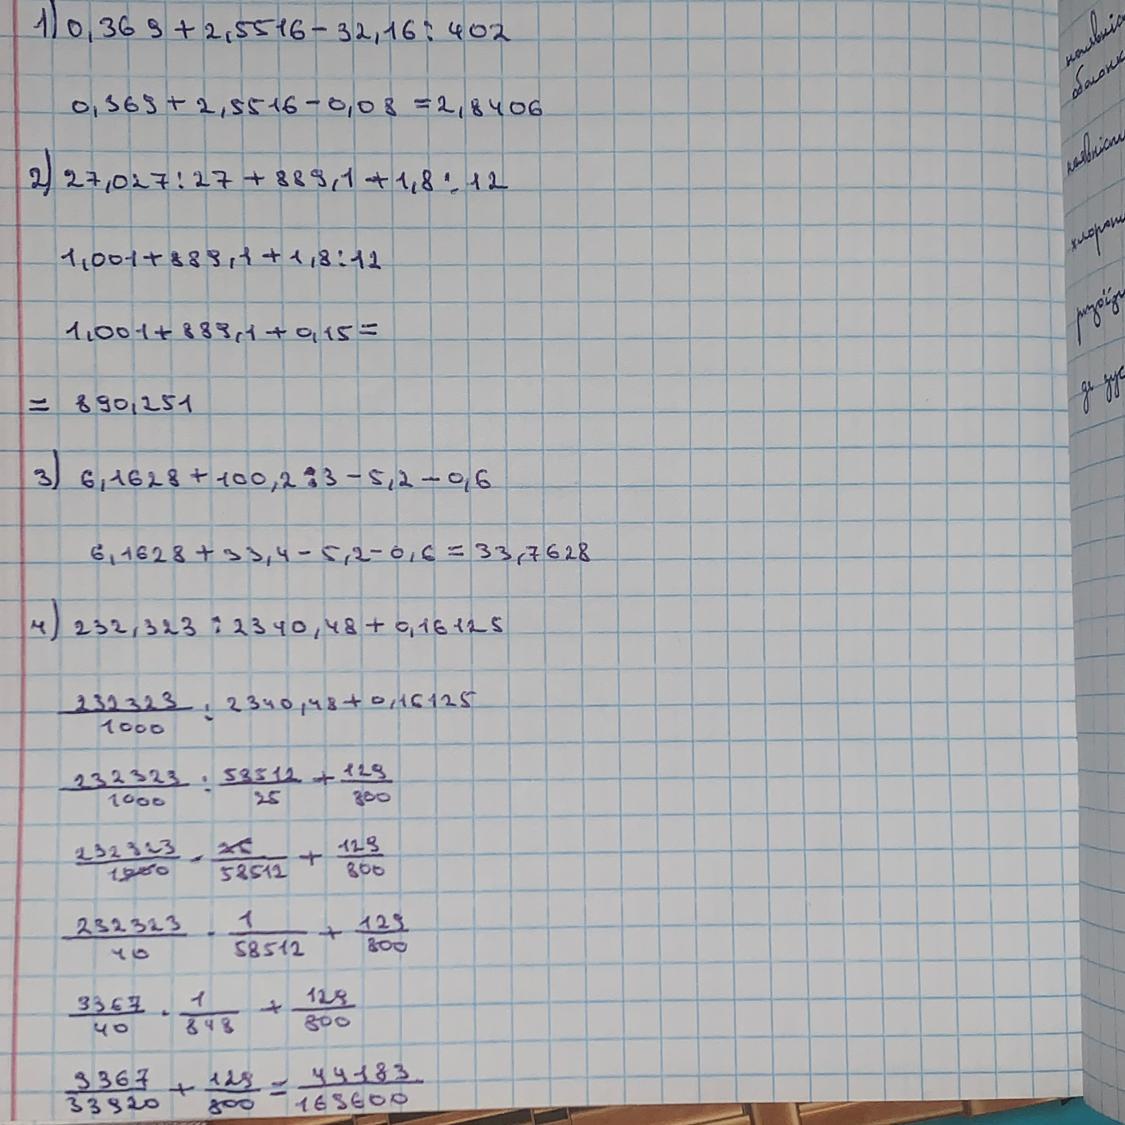 1) 0,369 + 2,5516 - 32,16 : 402
0,369 + 2,5516 - 0,08 = 2,8406
2) 27,027 : 27 + 889,1 + 1,8 : 12
1,001 + 889,1 + 1,8 : 12
1,001 + 889,1 + 0,15 =
= 890,251
3) 6,1628 + 100,2 : 3 - 5,2 - 0,6
6,1628 + 33,4 - 5,2 - 0,6 = 33,7628
4) 232,323 : 2340,48 + 0,16125
232323/1000 : 2340,48 + 0,16125
232323/1000 : 58512/25 + 129/800
232323/1000 · 25/58512 + 129/800
232323/40 · 1/58512 + 129/800
3367/40 · 1/848 + 129/800
3367/33920 + 129/800 = 44183/169600